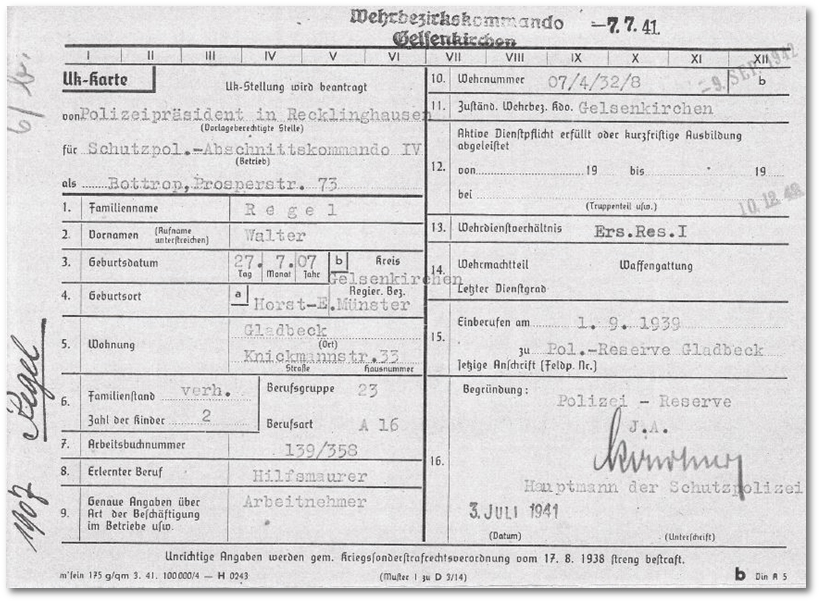 Wehrbezirkskommando
Gelsenkirchen
-7.7.41
I II III IV V VI VII VIII IX X XI XII
-9. SEP. 1942
Uk-Karte
Uk-Stellung wird beantragt
von Polizeipräsident in Recklinghausen
(Vorlageberechtigte Stelle)
für Schutzpol.-Abschnittskommando IV
(Betrieb)
als Bottrop,Prosperstr. 73
1. Familienname Regel
2. Vornamen (Rufname unterstreichen) Walter
3. Geburtsdatum 27. 7.07 b Kreis
Tag Monat Jahr Gelsenkirchen
4. Geburtsort a Horst-E. Regier. Bez. Münster
5. Wohnung Gladbeck
(Ort)
Knickmannstr.33
Straße Hausnummer
6. Familienstand verh. Berufsgruppe 23
Zahl der Kinder 2 Berufsart A 16
7. Arbeitsbuchnummer 139/358
8. Erlernter Beruf Hilfsmaurer
9. Genaue Angaben über Arbeitnehmer
Art der Beschäftigung
im Betriebe usw.
10. Wehrnummer 07/4/32/8 b
11. Zuständ. Wehrbez. Kdo. Gelsenkirchen
12. Aktive Dienstpflicht erfüllt oder kurzfristige Ausbildung
abgeleistet
von 19 bis 19
bei
(Truppenteil usw.)
10.12.42
13. Wehrdienstverhältnis Ers.Res.I
14. Wehrmachtteil Waffengattung
Letzter Dienstgrad
15. Einberufen am 1. 9. 1939
zu Pol.-Reserve Gladbeck
Jetzige Anschrift (Feldp. Nr.)
16. Begründung:
Polizei - Reserve
J.A.
Hauptmann der Schutzpolizei
3. JULI 1941
(Datum) (Unterschrift)
Unrichtige Angaben werden gem. Kriegssonderstrafrechtsverordnung vom 17. 8. 1938 streng bestraft.
m'fein 175 g/qm 3. 41. 100000/4 — H 0243
(Muster 1 zu D 3/14)
b Din A 5
1907 Regel